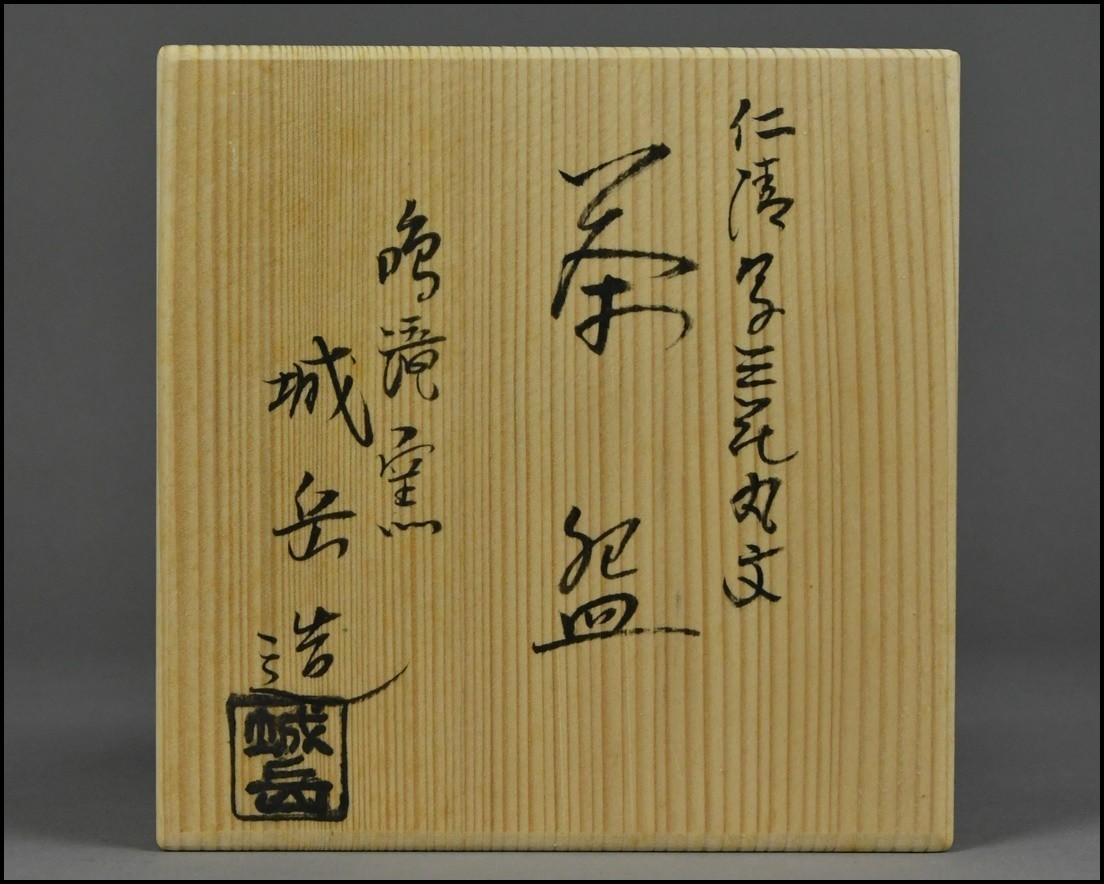 仁清写三花丸文
茶盌
鳴滝窯
城岳造
城岳